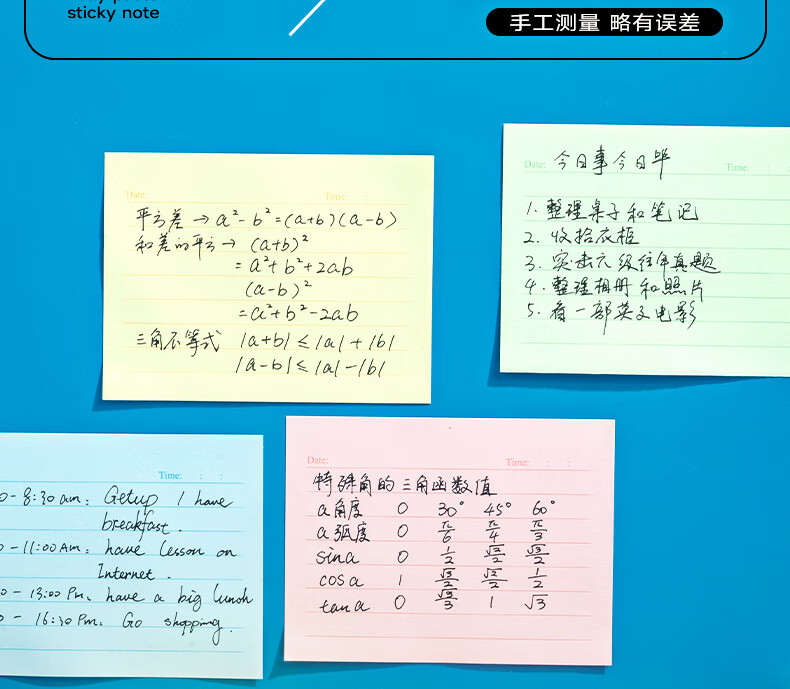 sticky note
手工测量 略有误差
Date:
Time: : :
平方差→a²-b²=(a+b)(a-b)
和差的平方→ (a+b)²
=a²+b²+2ab
(a-b)²
=a²+b²-2ab
三角不等式 |a+b|≤|a|+|b|
|a-b|≤|a|-|b|
Date: 今日事今日毕 Time: : :
1. 整理桌子和笔记
2. 收拾衣柜
3. 突击六级往年真题
4. 整理相册和照片
5. 看一部英文电影
Time: : :
0-8:30 am: Getup / have
breakfast.
0-11:00 Am: have lesson on
Internet.
0-13:00 Pm: have a big lunch
0-16:30 Pm: Go shopping.
Date:
Time: : :
特殊角的三角函数值
a角度 0 30° 45° 60°
a弧度 0 π/6 π/4 π/3
sina 0 1/2 √2/2 √3/2
cosa 1 √3/2 √2/2 1/2
tana 0 √3/3 1 √3